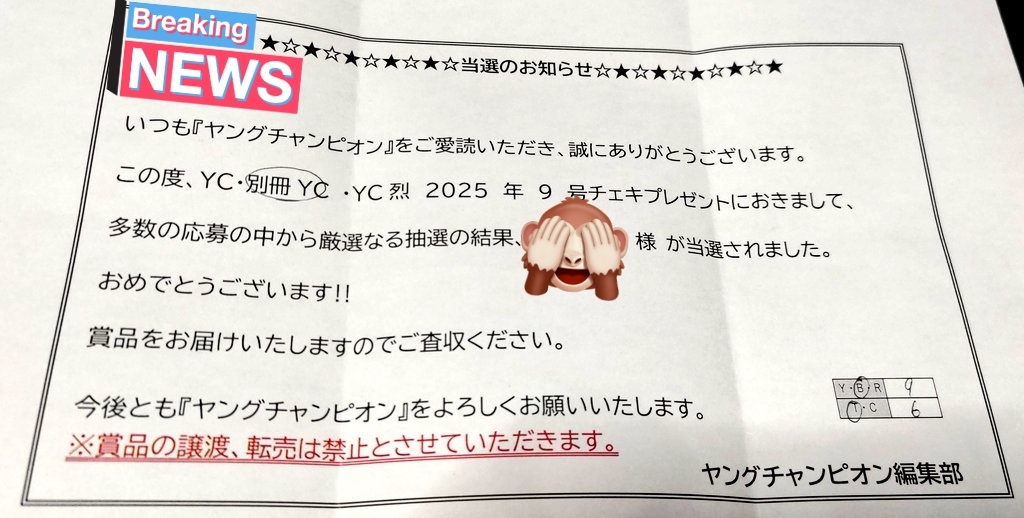 Breaking
NEWS
★☆★☆★☆★☆★☆当選のお知らせ☆★☆★☆★☆★☆★
いつも『ヤングチャンピオン』をご愛読いただき、誠にありがとうございます。
この度、YC・別冊YC・YC烈 2025 年 9 号チェキプレゼントにおきまして、
多数の応募の中から厳選なる抽選の結果、 様 が当選されました。
おめでとうございます!!
賞品をお届けいたしますのでご査収ください。
今後とも『ヤングチャンピオン』をよろしくお願いいたします。
※賞品の譲渡、転売は禁止とさせていただきます。
Y・B・R 9
T・C 6
ヤングチャンピオン編集部